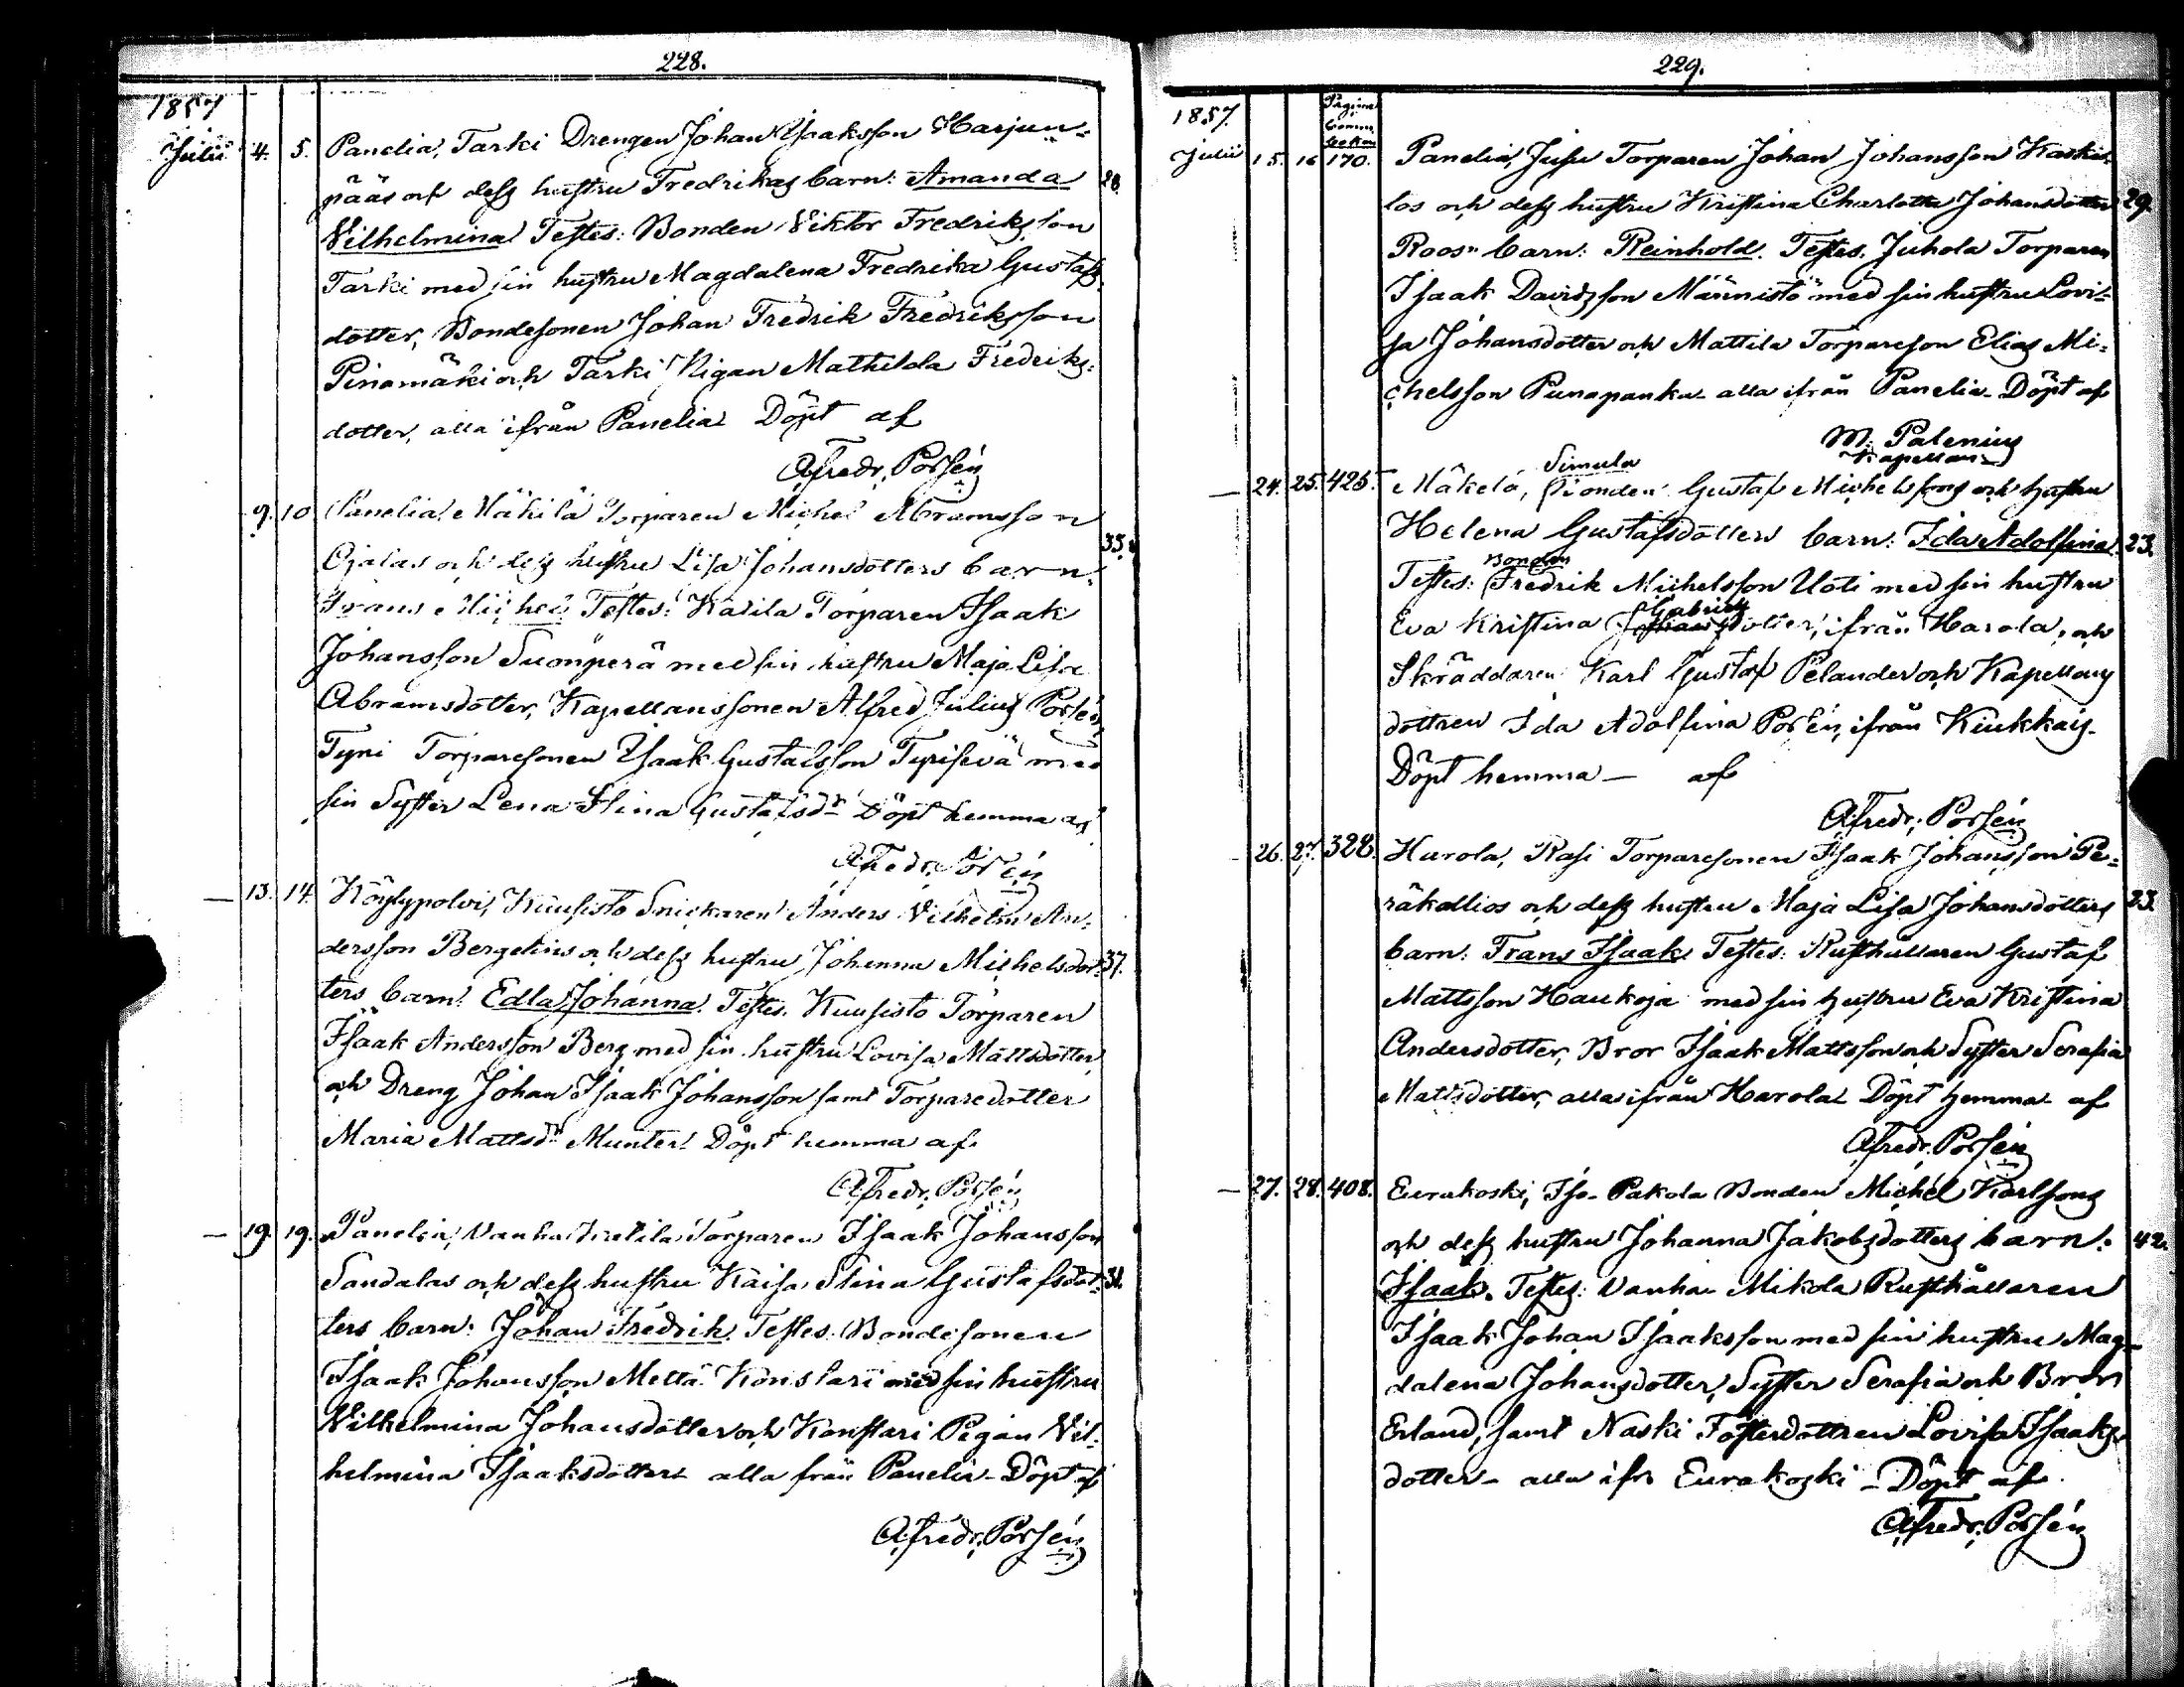 228.
1857
Julii 4. 5. Panelia, Tarki Drengen Johan Isaaksson Harjun-
pääs och dess hustru Fredrikas barn: Amanda 28.
Vilhelmina Testes: Bonden Viktor Fredriksson
Tarki med sin hustru Magdalena Fredrika Gustafs-
dotter, Bondesonen Johan Fredrik Fredriksson
Pinamäki och Tarki Pigan Mathilda Fredriks-
dotter, alla ifrån Panelia Döpt af
A. Fredr. Porsén
9. 10 Panelia, Mäkilä Torparen Michel Abramsson
Ojalas och dess hustru Lisa Johansdotters barn: 33.
Frans Michel Testes: Kavila Torparen Isaak
Johansson Suonperä med sin hustru Maja Lisa
Abramsdotter, Kapellanssonen Alfred Julius Porsén,
Tyni Torparesonen Isaak Gustafsson Tynisevä med
sin Syster Lena Stina Gustafsdr Döpt hemma af
A. Fredr. Porsén
— 13. 14. Köylypolvi, Kuusisto Snickaren Anders Vilhelm An-
dersson Bergelins och dess hustru Johanna Michelsdot- 37.
ters barn: Edla Johanna. Testes. Kuusisto Torparen
Isaak Andersson Berg med sin hustru Lovisa Mattsdotter,
och Dreng Johan Isaak Johansson samt Torparedotter
Maria Mattsdr Munter. Döpt hemma af
A. Fredr. Porsén
— 19. 19. Panelia, Vanha Knatila Torparen Isaak Johansson
Sandalas och dess hustru Kaisa Stina Gustafsdot- 31.
ters barn: Johan Fredrik. Testes. Bondesonen
Isaak Johansson Mettä Konstari med sin hustru
Vilhelmina Johansdotter och Konstari Pigan Vil-
helmina Isaaksdotter alla från Panelia - Döpt af
A. Fredr. Porsén
229.
1857. Pagina Comm. boken
Julii 15. 16 170. Panelia, Jusu Torparen Johan Johansson Kaskis-
los och dess hustru Kristina Charlotta Johansdotter 29.
Roos" barn: Reinhold. Testes. Juhola Torparen
Isaak Davidsson Männistö med sin hustru Lovi-
sa Johansdotter och Mattila Torpareson Elias Mi-
chelsson Punapanka - alla ifrån Panelia - Döpt af
M. Palenius
Kapellan
Simula
— 24. 25. 425. Mäkelä, Bonden Gustaf Michelssons och hustru
Helena Gustafsdotters barn: Ida Adolfina. 23.
Bonden
Testes: Fredrik Michelsson Uoti med sin hustru
Gabriels
Eva Kristina dotter, ifrån Harola, och
Skräddaren Karl Gustaf Pelander och Kapellans
dottren Ida Adolfina Porsén, ifrån Kiukkais-
Döpt hemma — af
A. Fredr. Porsén
26. 27. 328. Harola, Rasi Torparesonen Isaak Johansson Pe-
räkallios och dess hustru Maja Lisa Johansdotters 23.
barn: Frans Isaak. Testes: Rusthållaren Gustaf
Mattsson Haukoja med sin hustru Eva Kristina
Andersdotter, Bror Isaak Mattsson och Syster Serafia
Mattsdotter, alla ifrån Harola Döpt hemma af
A. Fredr. Porsén
— 27. 28. 408. Eurakoski, Iso-Pakola Bonden Michel Karlssons
och dess hustru Johanna Jakobsdotters barn: 42.
Isaak. Testes: Vanha Mikola Rusthållaren
Isaak Johan Isaaksson med sin hustru Mag-
dalena Johansdotter, Syster Serafia och Bror
Erland, samt Naski Fosterdottren Lovisa Isaaks-
dotter - alla ifr. Eurakoski - Döpt af
A. Fredr. Porsén